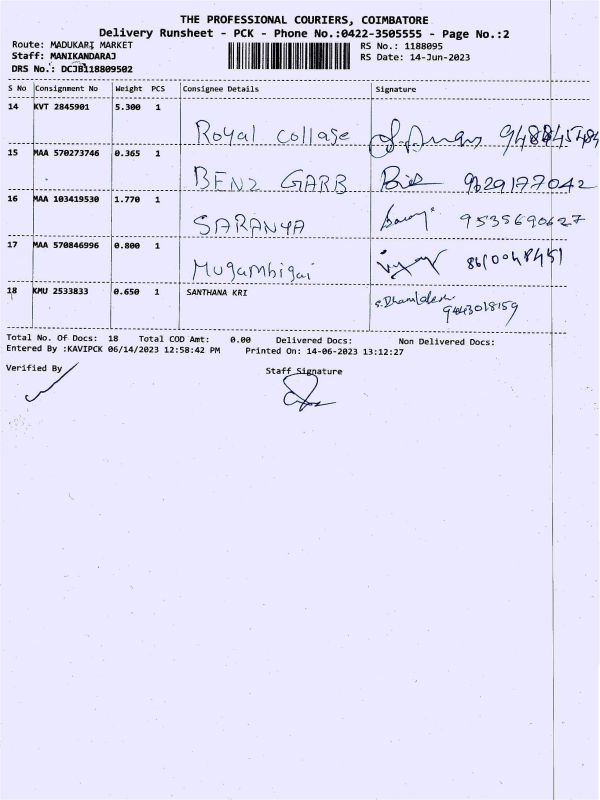 THE PROFESSIONAL COURIERS, COIMBATORE
Delivery Runsheet - PCK - Phone No.:0422-3505555 - Page No.:2
Route: MADUKARI MARKET RS No.: 1188095
Staff: MANIKANDARAJ RS Date: 14-Jun-2023
DRS No.: DCJB118809502
S No Consignment No Weight PCS Consignee Details Signature
14 KVT 2845901 5.300 1
Royal collage
15 MAA 570273746 0.365 1
BENZ GARB 9629177042
16 MAA 103419530 1.770 1
SARANYA 9535690627
17 MAA 570846996 0.800 1
Mugambigai
18 KMU 2533833 0.650 1 SANTHANA KRI
9443018159
Total No. Of Docs: 18 Total COD Amt: 0.00 Delivered Docs: Non Delivered Docs:
Entered By :KAVIPCK 06/14/2023 12:58:42 PM Printed On: 14-06-2023 13:12:27
Verified By Staff Signature